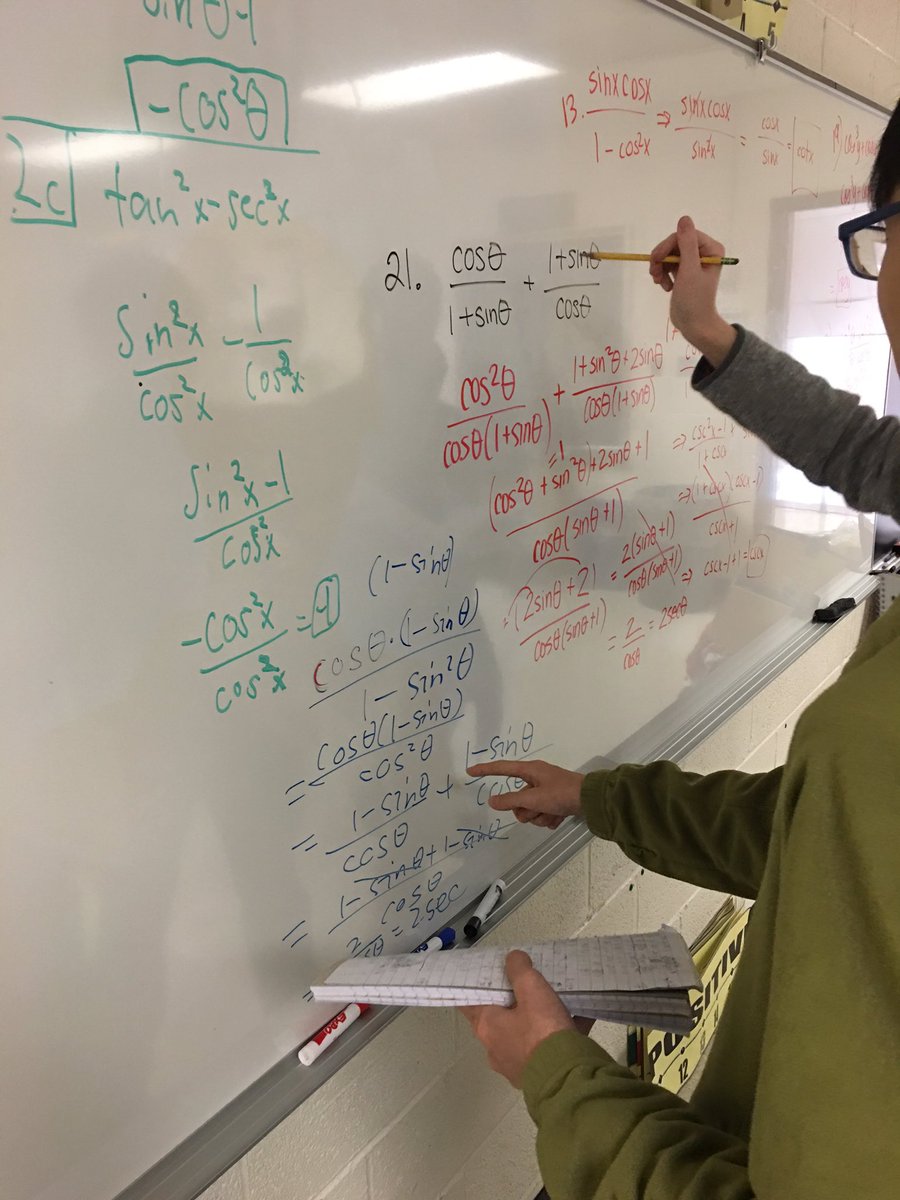 sinθ-1
-cos²θ
2c
tan²x-sec²x
sin²x/cos²x - 1/cos²x
sin²x-1/cos²x
-cos²x/cos²x = -1
13. sinx cosx/1-cos²x ⇒ sinx cosx/sin²x = cosx/sinx = cotx
21. cosθ/1+sinθ + 1+sinθ/cosθ
cos²θ/cosθ(1+sinθ) + 1+sin²θ+2sinθ/cosθ(1+sinθ)
=1
(cos²θ+sin²θ)+2sinθ+1/cosθ(sinθ+1)
=(2sinθ+2)/cosθ(sinθ+1) = 2(sinθ+1)/cosθ(sinθ+1)
= 2/cosθ = 2secθ
⇒ csc²x-1/1+cscx +
⇒ (1+cscx)(cscx-1)/cscx+1
⇒ cscx-1+1=cscx
(1-sinθ)
cosθ·(1-sinθ)/1-sin²θ
= cosθ(1-sinθ)/cos²θ
= 1-sinθ/cosθ + 1-sinθ/cosθ
= 1-sinθ+1-sinθ/cosθ
= 2sec
EXPO
POSITIVE
12